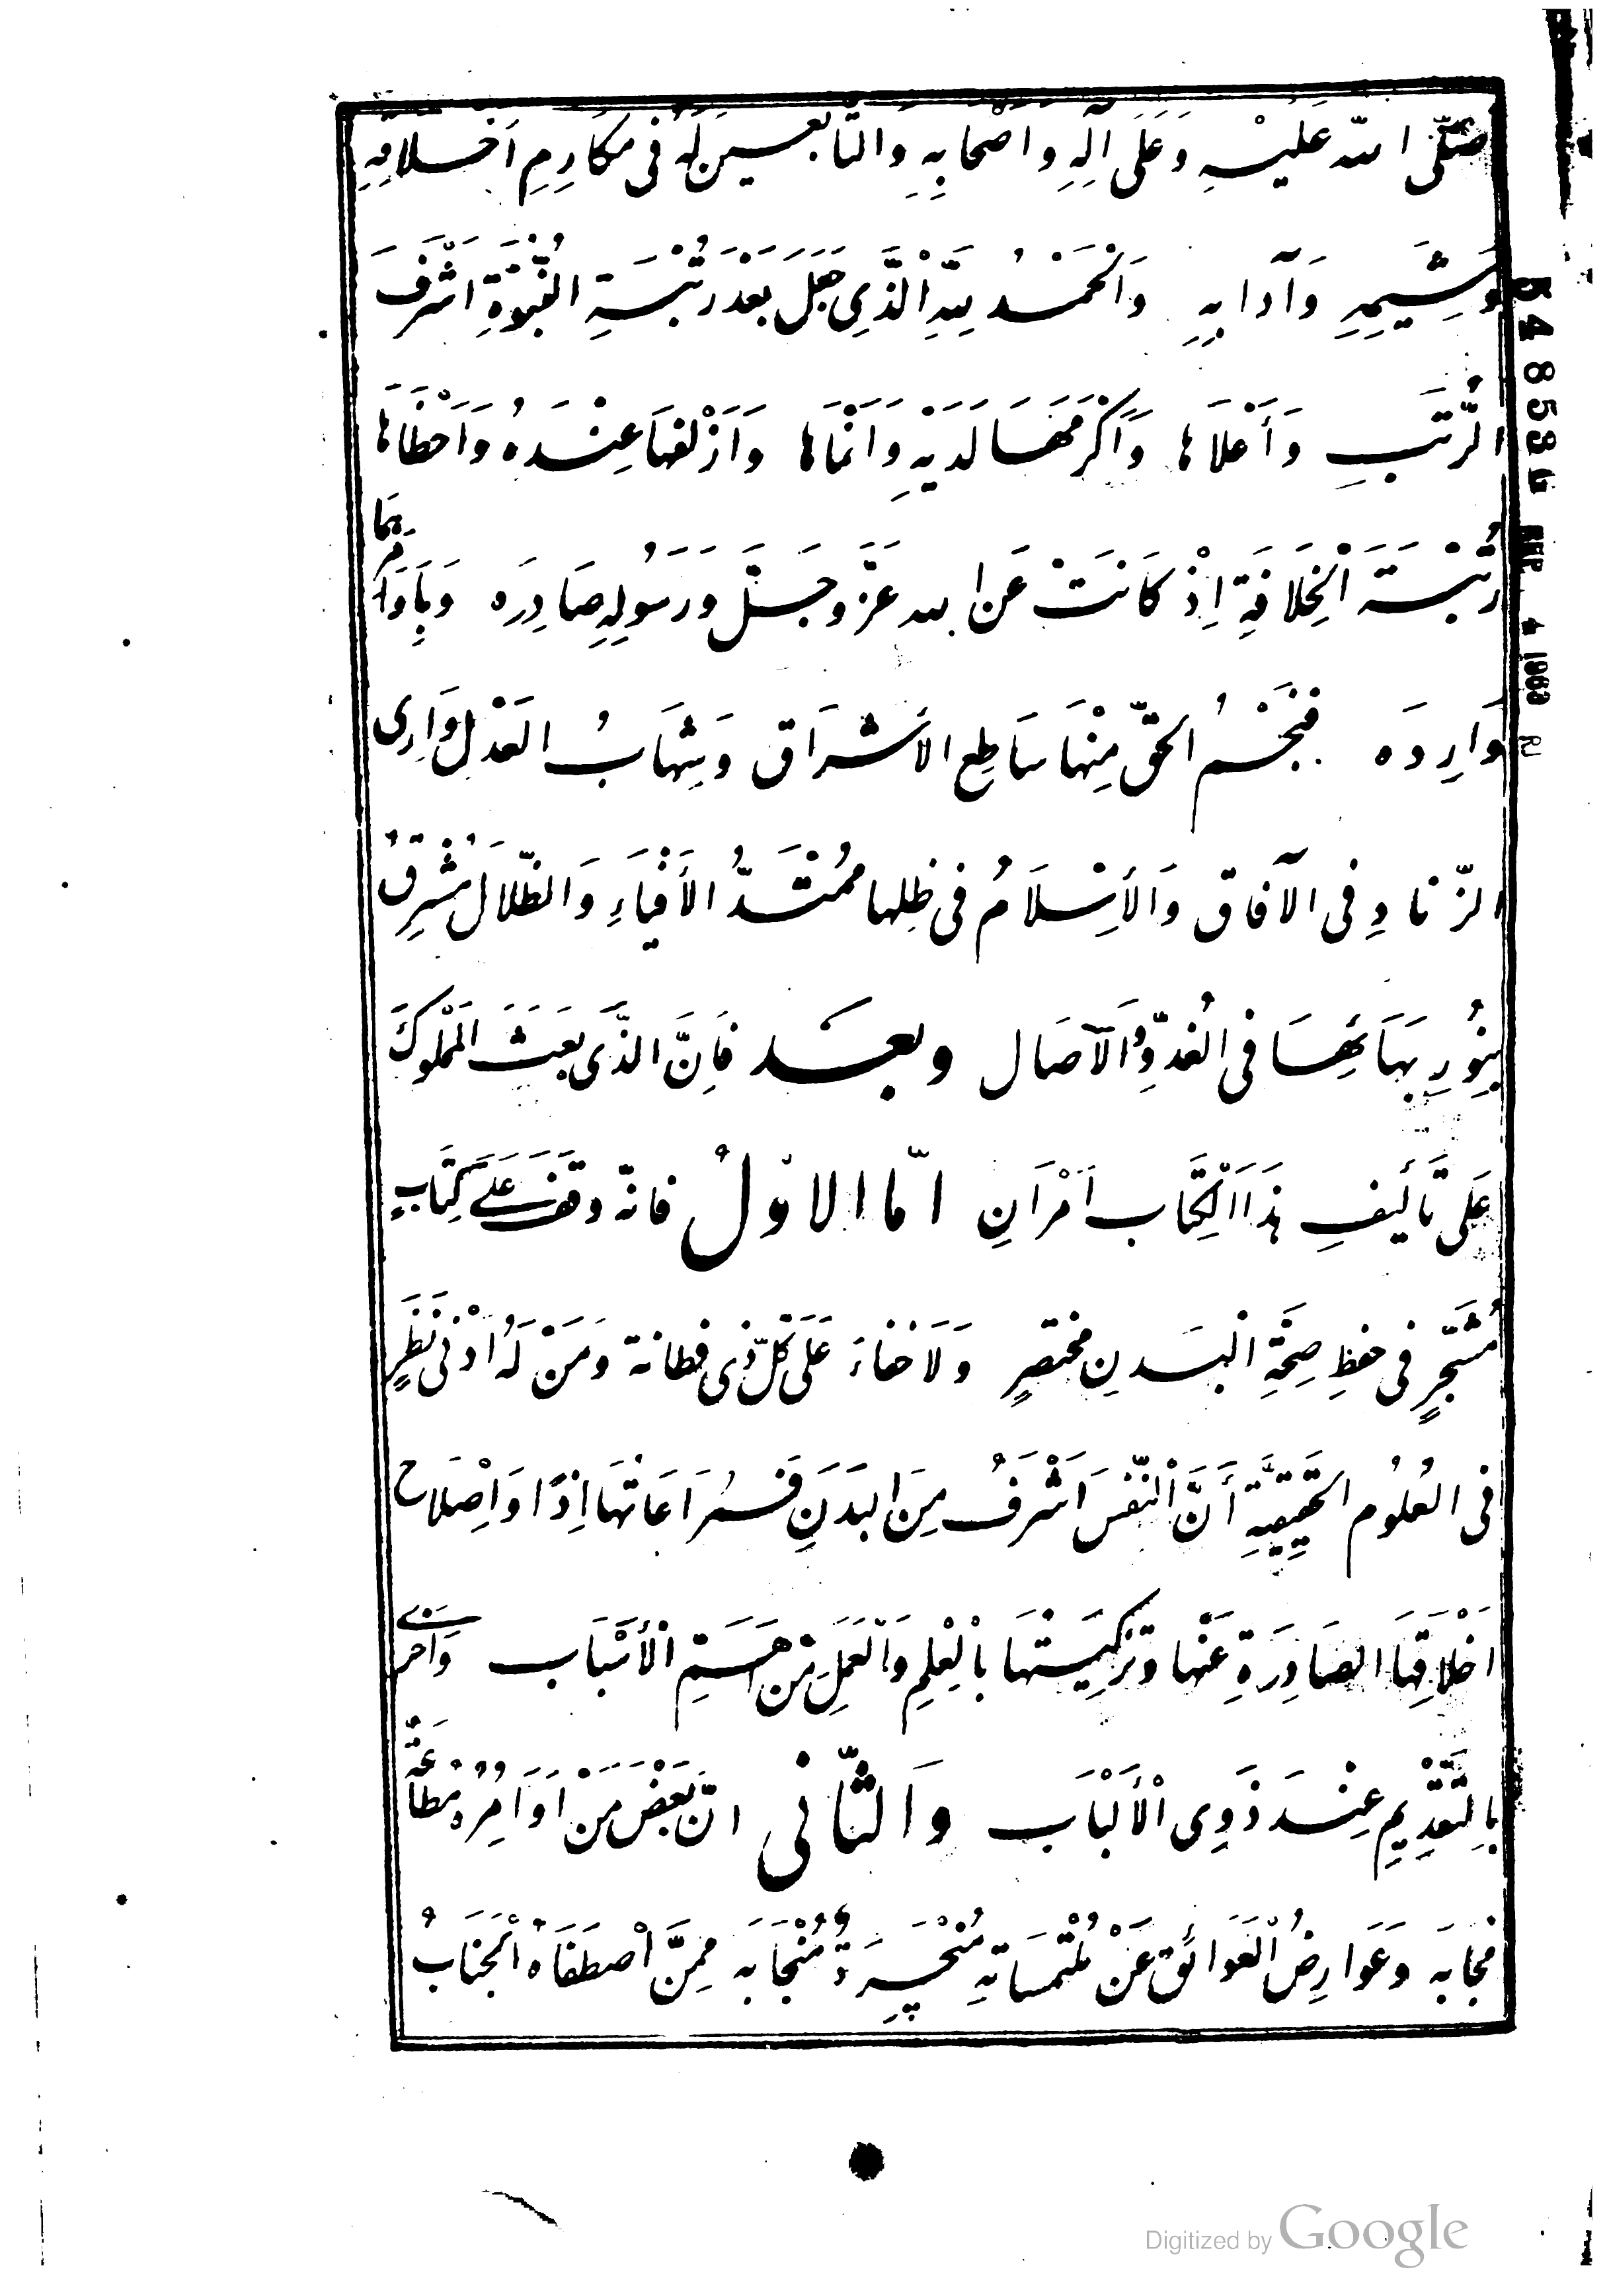 صَلَّى اللّه عَلَيْهِ وَعَلَى آلِهِ وَاَصْحَابِهِ وَالتَّابِعِينَ لَهُ فِى مَكَارِمِ اَخْلَاقِهِ
وَشِيَمِهِ وَآدَابِهِ وَالْحَمْدُ لِلّهِ الَّذِى جَعَلَ بَعْدَ رُتْبَةِ النُّبُوَّةِ اَشْرَفَ
الرُّتَبِ وَأَعْلَاهَا وَاَكْرَمَهَا لَدَيْهِ وَاَنْمَاهَا وَاَزْلَفَهَا عِنْدَهُ وَاَحْظَاهَا
رُتْبَةَ الْخِلَافَةِ اِذْ كَانَتْ عَنِ اللّه عَزَّ وَجَلَّ وَرَسُولِهِ صَادِرَه وَبِاَوَامِرِهِمَا
وَارِدَه فَنَجْمُ الحَقِّ مِنْهَا سَاطِع الاَشْرَاق وَشِهَابُ العَدْلِ وَارِى
الزّنَادِ فى الآفاق وَالاِسْلَامُ فى ظِلها مُمْتَدُّ الأَفْيَاءِ وَالظِّلَال مُشْرِقٌ
بِنُورِ بَهَائِهَا فى الغُدُوِّ وَالآصَال وبعَد فَاِنَّ الذَّى بَعَثَ المَمْلُوكَ
عَلَى تَأليفِ هذَا الْكِتَاب اَمْرَانِ امّا الاوّلُ فانهّ وَقَفَ عَلَى كِتَابٍ
مُشَجَّرٍ فى حفظِ صِحَّةِ البَدنِ مختصرٍ وَلَا خفاءَ عَلَى كُلّ ذِى فطانة وَمَنْ لَهُ اَدْنَى نَظَرٍ
فى العُلُوم الحَقِيقِيَّةِ أَنَّ النَّفْسَ اَشْرَفُ مِنَ البَدَنِ فَمُرَاعَاتُهَا اِذًا وَاِصْلَاح
اَخْلَاقِهَا الصَادِرَةِ عَنْهَا وَتَزْكِيَتهَا بِالْعِلْمِ وَالْعَمَلِ مِنْ اَهَمِّ الْأَسْبَاب وَاَحْرَى
بِالتَّقْدِيمِ عِنْدَ ذَوِى الْأَلْبَاب وَالثّانى انّ بَعْضَ مَنْ اَوَامِرُهُ مُطَاعَةٌ
مجَابَه وَعَوَارِضُ الْعَوَائِق عَنْ مُلْتَمَسَاتِهِ مُنْحَسِرَةٌ مُنْجَابَه مِمَّنِ اصْطَفَاهُ الْجَنَابُ
Digitized by Google